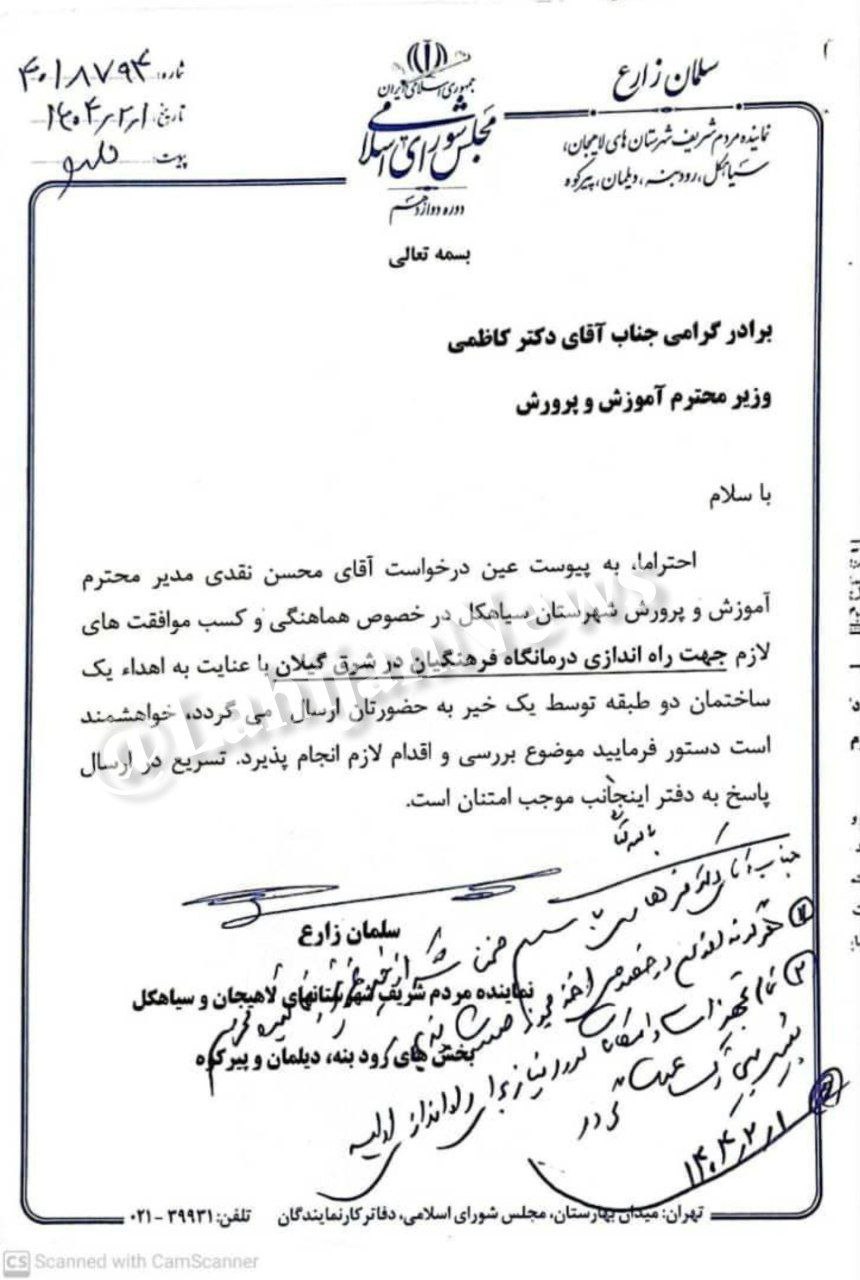 سلمان زارع
نماینده مردم شریف شهرستان های لاهیجان،
سیاهکل، رودبنه، دیلمان، پیرکوه
جمهوری اسلامی ایران
مجلس شورای اسلامی
دوره دوازدهم
شماره: ۴۰۱۸۷۹۴
تاریخ: ۱۴۰۴٫۲٫۱
پیوست:
بسمه تعالی
برادر گرامی جناب آقای دکتر کاظمی
وزیر محترم آموزش و پرورش
با سلام
احتراما، به پیوست عین درخواست آقای محسن نقدی مدیر محترم
آموزش و پرورش شهرستان سیاهکل در خصوص هماهنگی و کسب موافقت های
لازم جهت راه اندازی درمانگاه فرهنگیان در شرق گیلان با عنایت به اهداء یک
ساختمان دو طبقه توسط یک خیر به حضورتان ارسال می گردد، خواهشمند
است دستور فرمایید موضوع بررسی و اقدام لازم انجام پذیرد. تسریع در ارسال
پاسخ به دفتر اینجانب موجب امتنان است.
@LahijanNews
سلمان زارع
نماینده مردم شریف شهرستانهای لاهیجان و سیاهکل
بخش های رود بنه، دیلمان و پیرکوه
جناب آقای دکتر
برای راه اندازی اولیه
۱۴۰۴٫۲٫۱
تهران: میدان بهارستان، مجلس شورای اسلامی، دفاتر کار نمایندگان تلفن: ۳۹۹۳۱-۰۲۱
CS Scanned with CamScanner